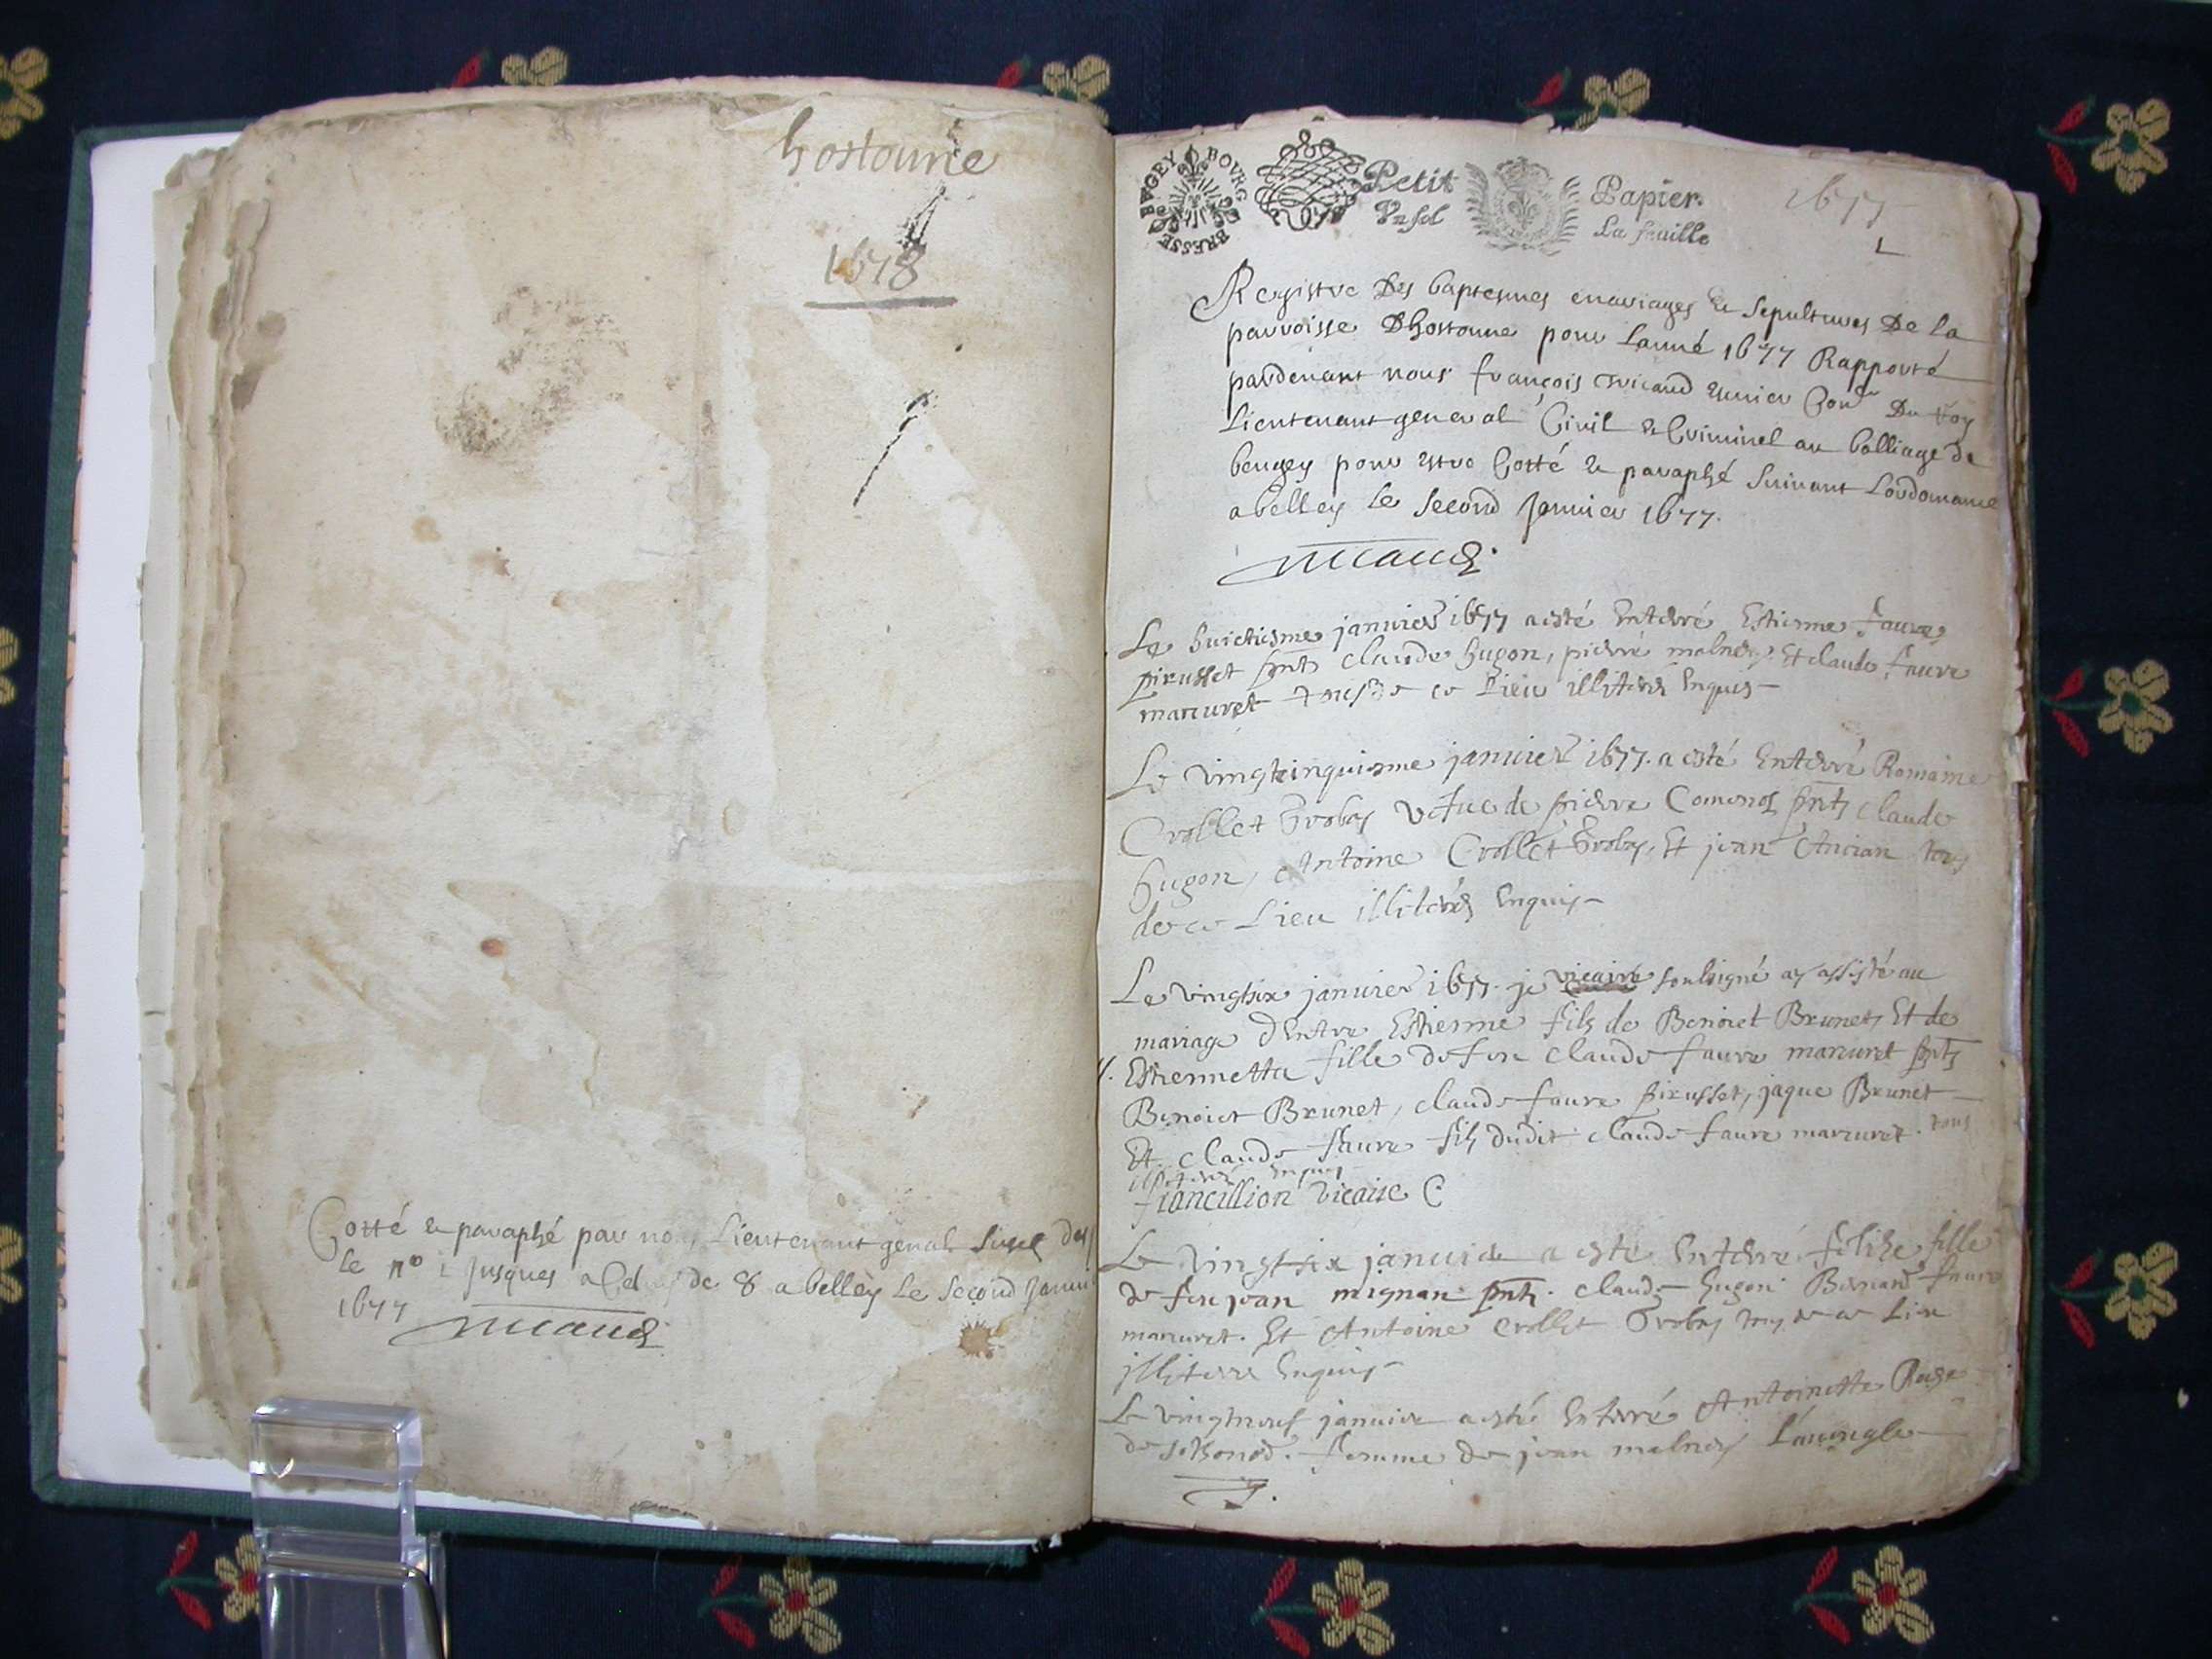 hostonne
1678
Cotté & paraphé par nous Lieutenant genal
le no 1 jusques a de 8 a belley le second Janvi
1677
BOVRG BRESSE BVGEY
Petit Papier
Vn sol La feuille
1677
1
Registre Des baptesmes mariages & sepultures De la
parroisse Dhostonne pour Lanné 1677 Rapporté
pardevant nous françois escuier Conr Du Roy
Lieutenant general Civil & Criminel au balliage de
beugey pour estre Cotté & paraphé suivant Lordonnance
a belley le second Janvier 1677.
Le huictiesme janvier 1677 a esté Enterré Estienne faure
pirusset pnts claude hugon, pierre malnery Et claude faure
marcuret tous de ce Lieu illiteres Enquis
Le vingtcinquiesme janvier 1677. a esté Enterré Romaine
Crollet Brobas vefue de pierre pnts claude
hugon, Antoine Crollet Brobas, Et jean Ancian tous
de ce Lieu illiterés Enquis
Le vingtsix janvier 1677. je vicaire soubsigné ay assisté au
mariage dEntre Estienne fils de Benoict Brunet Et de
Estiennetta fille de feu claude faure marcuret pnts
Benoict Brunet, claude faure pirusset, jaque Brunet
Et claude faure fils dudit claude faure marcuret. tous
illiterés Enquis
francillion vicaire
Le vingtsix janvier a esté Enterré felize fille
de feu jean mignan pnts. claude hugon Bernard faure
marcuret. Et Antoine Crollet Brobas tous de ce Lieu
illiteres Enquis
Le vingtneuf janvier a esté Enterré Antoinette
de femme de jean malnery Laveugle